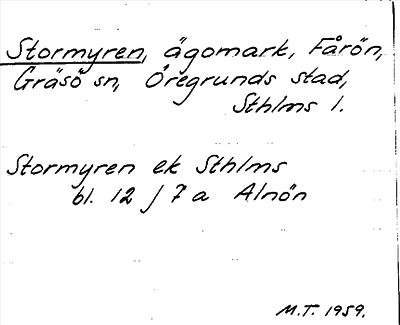 Stormyren, ägomark, Fårön,
Gräsö sn, Öregrunds stad,
Sthlms l.
Stormyren ek Sthlms
bl. 12 J 7 a Alnön
M.T. 1959.